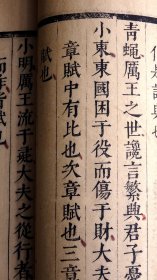 青蠅厲王之世讒言繁興君子憂
小東東國困于役而傷于財大夫
章賦中有比也次章賦也三章
賦也
小明厲王流于彘大夫之從行者